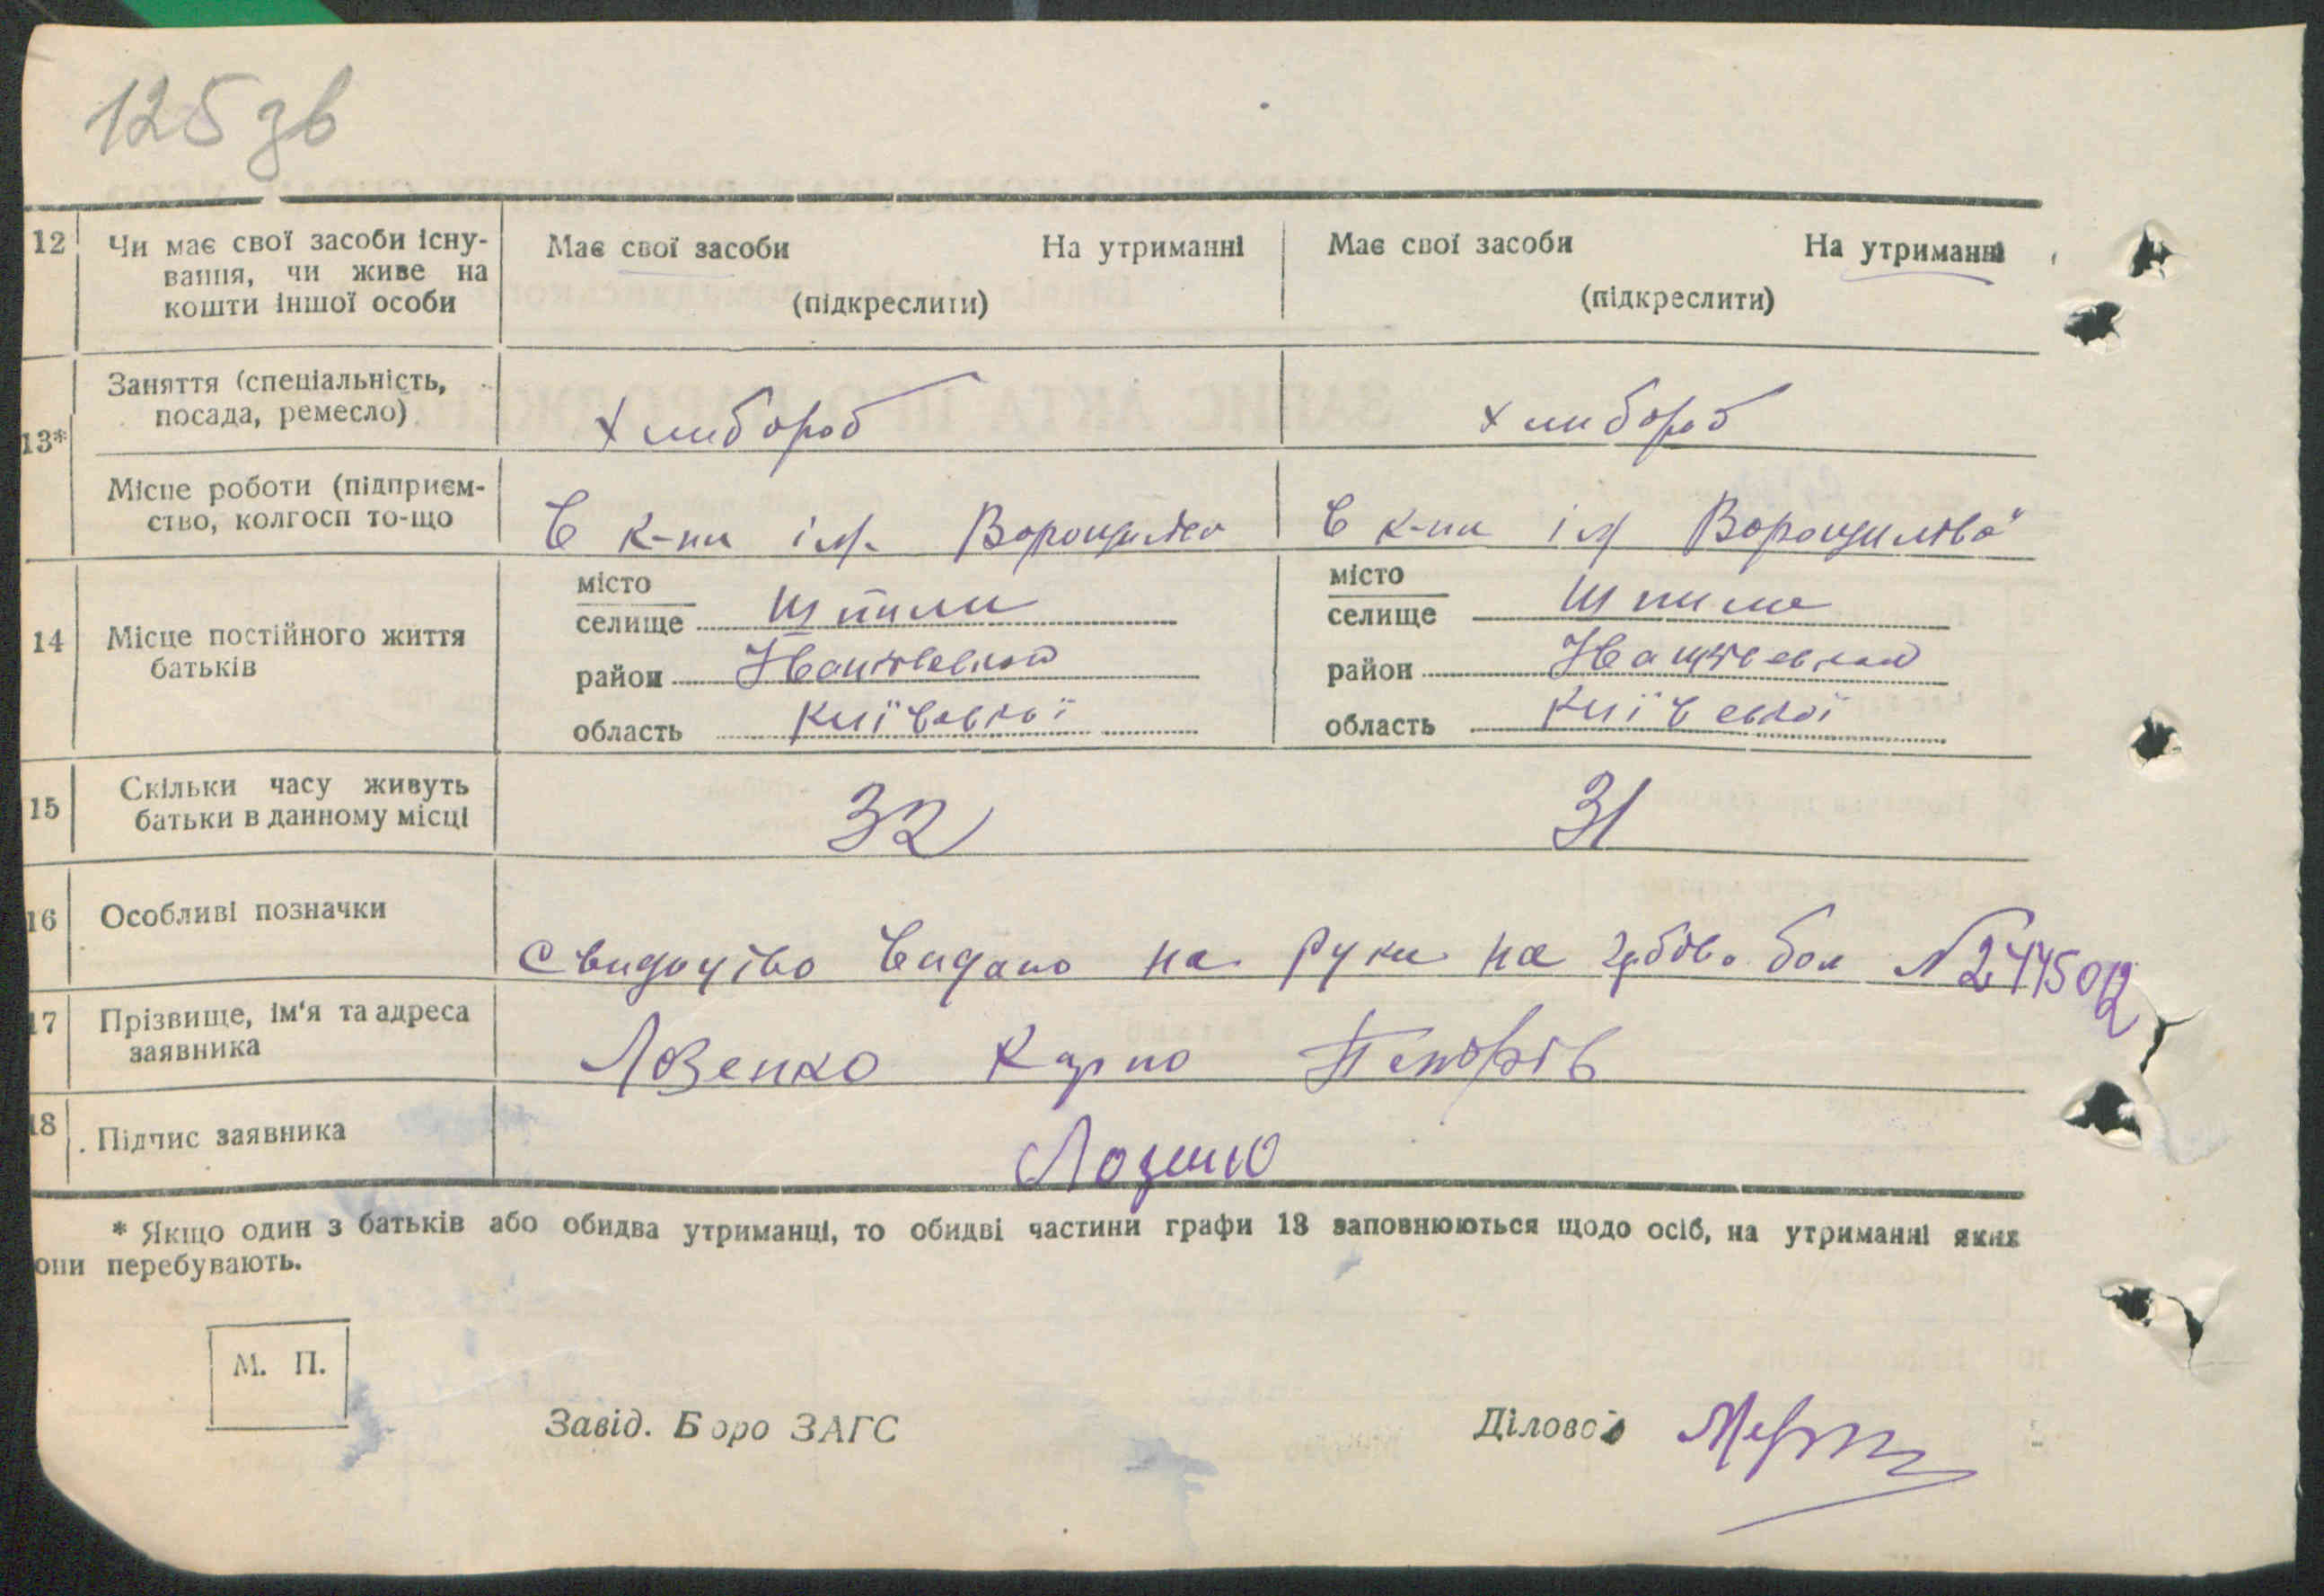 125 зв
12 Чи має свої засоби існу- Має свої засоби На утриманні Має свої засоби На утриманні
вання, чи живе на
кошти іншої особи (підкреслити) (підкреслити)
Заняття (спеціальність,
13* посада, ремесло) Хлибороб Хлибороб
Місце роботи (підприєм-
ство, колгосп то-що В к-пи ім. В к-пи ім
місто місто
селище Шпили селище Шпили
14 Місце постійного життя
батьків район район
область Київської область Київської
15 Скільки часу живуть
батьки в данному місці 32 31
16 Особливі позначки
Свидоцтво видано на руки на
17 Прізвище, ім'я та адреса
заявника Лозенко Карпо
18 Підпис заявника
* Якщо один з батьків або обидва утриманці, то обидві частини графи 13 заповнюються щодо осіб, на утриманні яких
они перебувають.
М. П.
Завід. Бюро ЗАГС Діловод